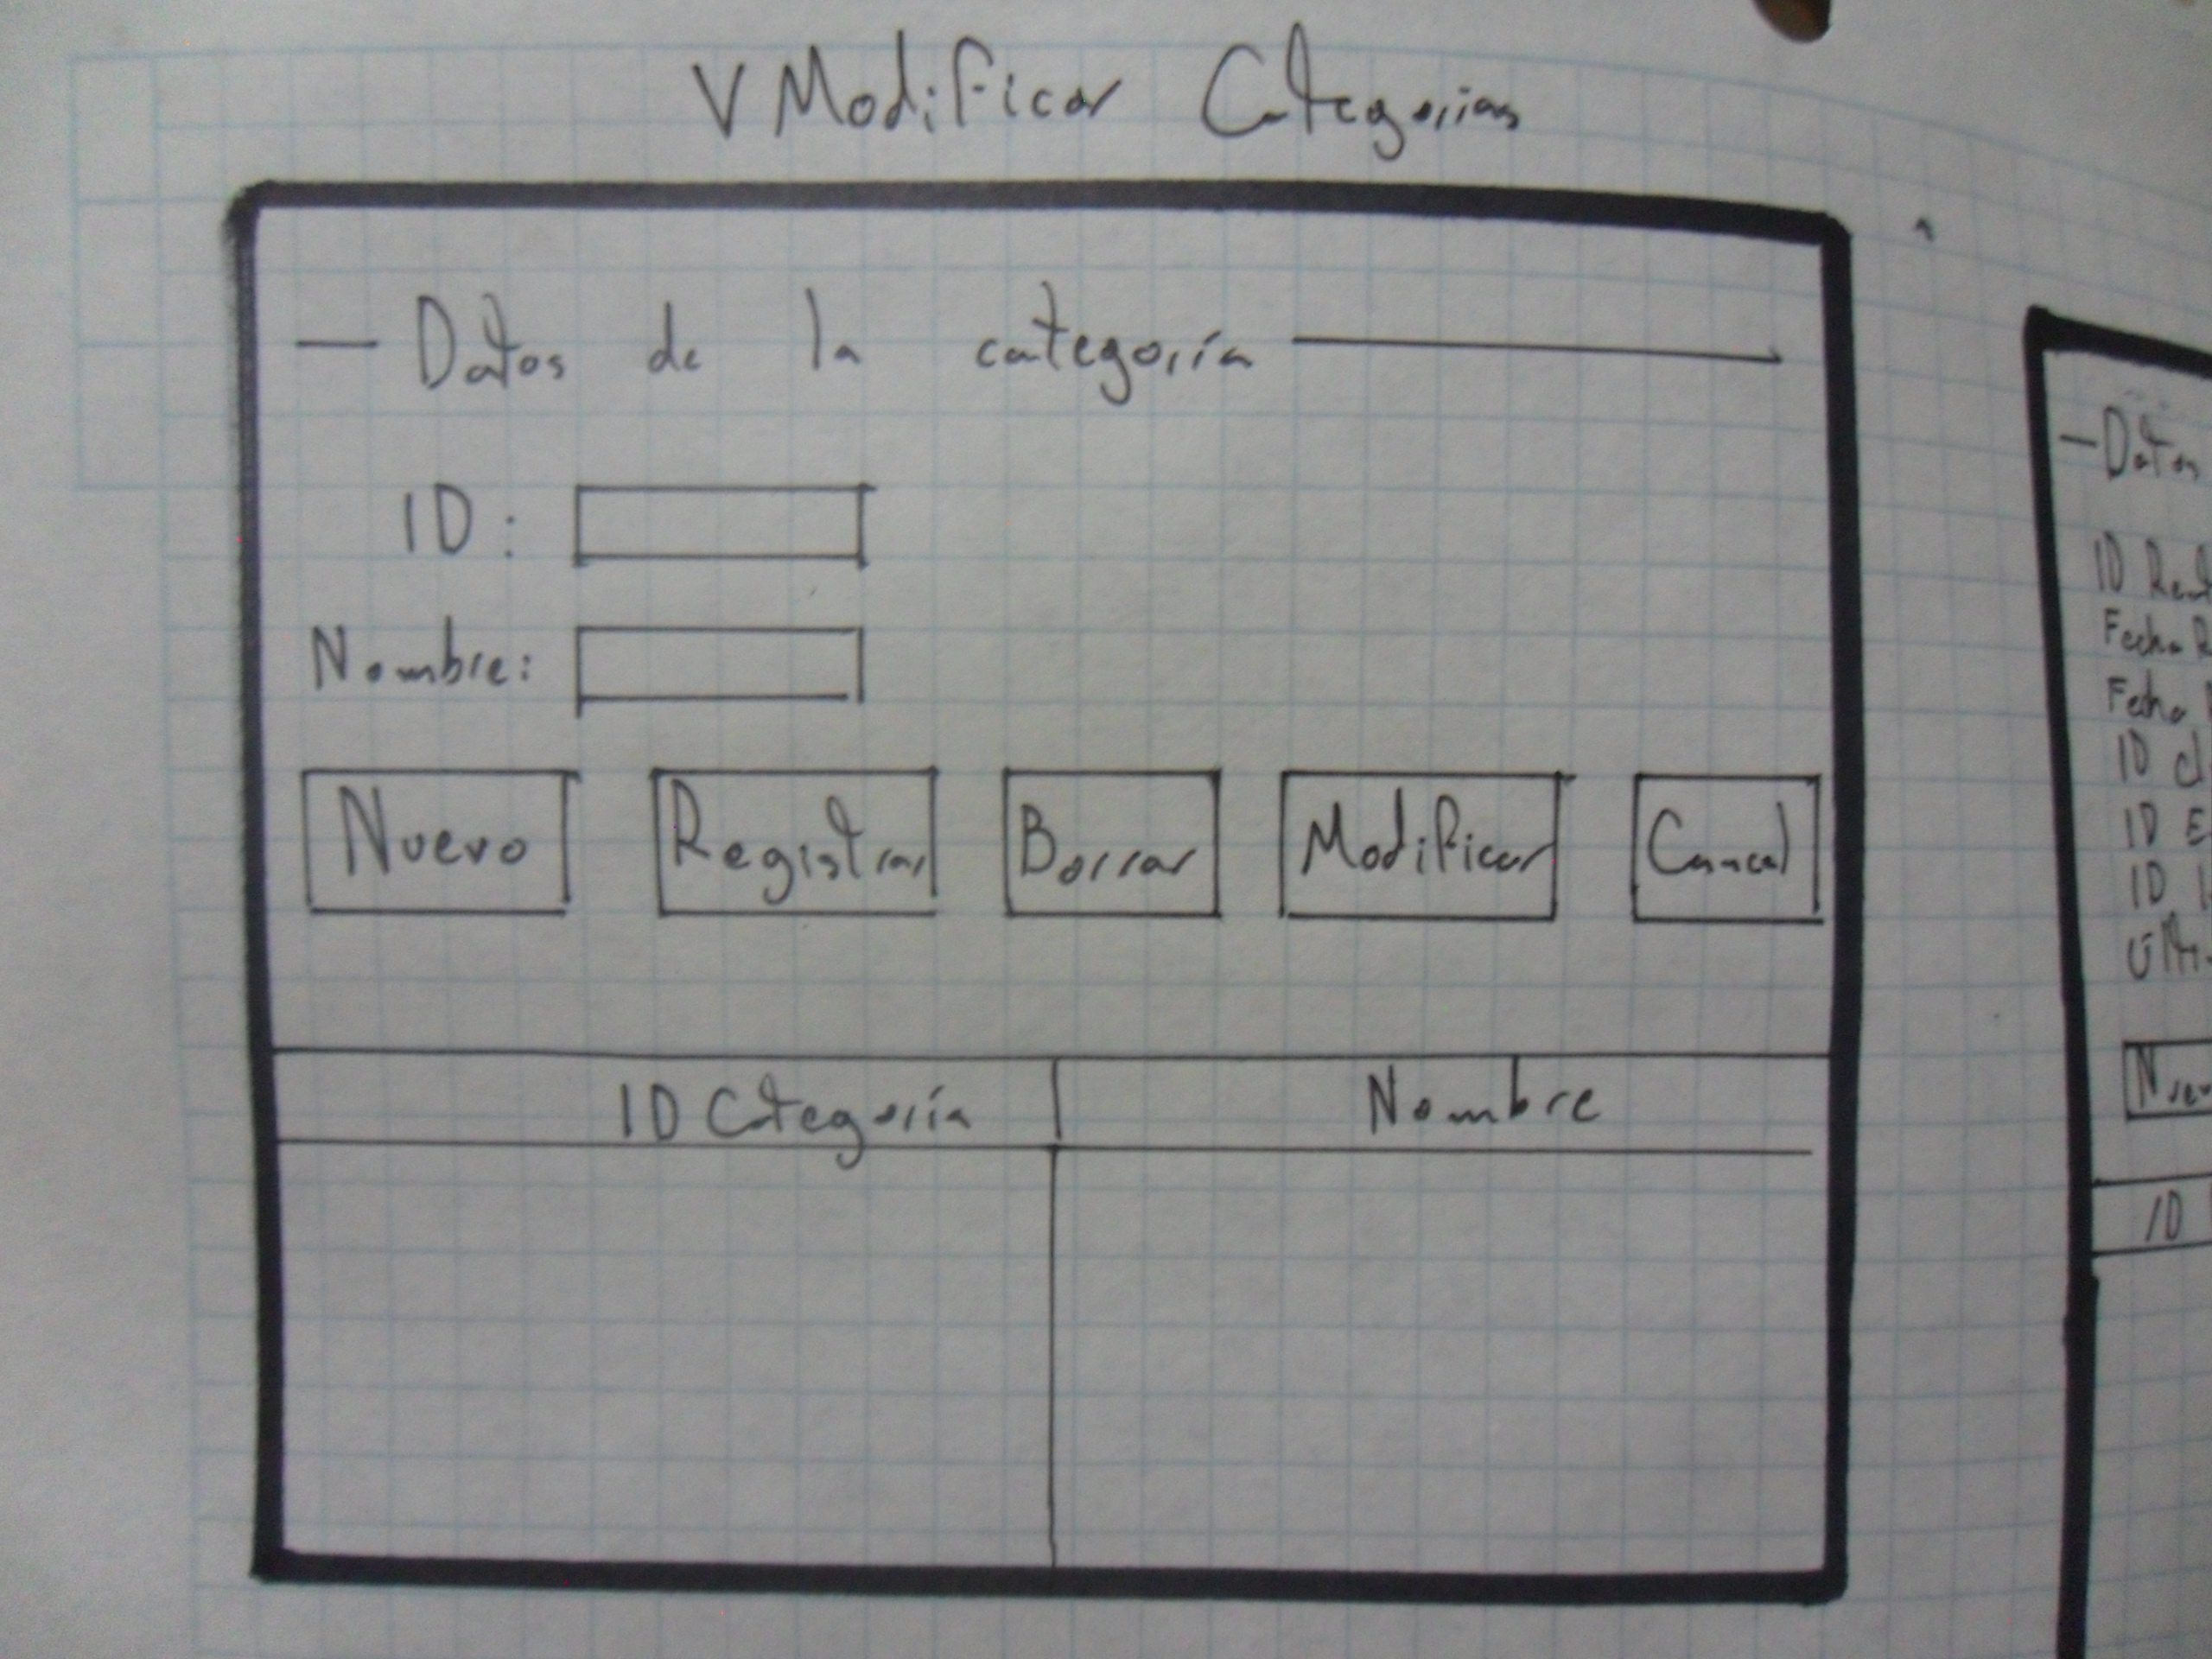 V Modificar Categorias
Datos de la categoría
ID:
Nombre:
Nuevo Registrar Borrar Modificar Cancel
ID Categoría Nombre
Datos
ID
Fecha
Fecha
ID
ID E
ID
ID